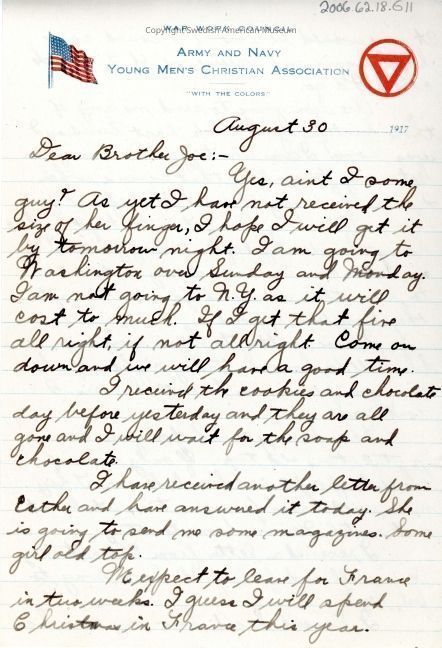 2006.62.18.G11
WAR WORK COUNCIL
Copyright Swedish American Museum
ARMY AND NAVY
YOUNG MEN'S CHRISTIAN ASSOCIATION
"WITH THE COLORS"
August 30 1917
Dear Brother Joe:-
Yes, aint I some
guy? As yet I have not received the
size of her finger, I hope I will get it
by tomorrow night. I am going to
Washington over Sunday and Monday.
I am not going to N.Y. as it will
cost to much. If I get that five
all right, if not all right. Come on
down and we will have a good time.
I received the cookies and chocolate
day before yesterday and they are all
gone and I will wait for the soap and
chocolate.
I have received another letter from
Esther and have answered it today. She
is going to send me some magazines. Some
girl old top.
We expect to leave for France
in two weeks. I guess I will spend
Christmas in France this year.